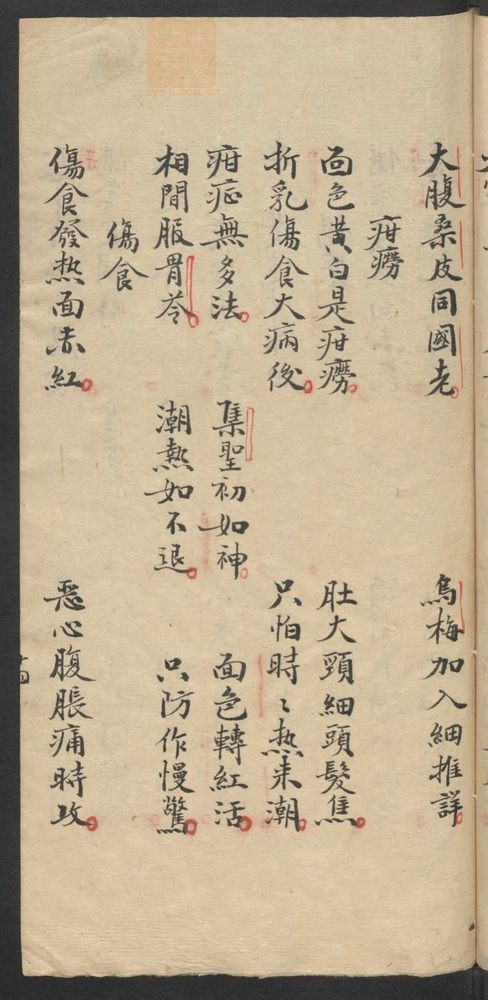 大腹桑皮同國老 烏梅加入細推詳
疳癆
面色黃白是疳癆 肚大頸細頭髮焦
折乳傷食大病後 只怕時〻热来潮
疳症無多法 集聖初如神 面色轉紅活
相間服胃苓 潮熱如不退 只防作慢驚
傷食
傷食發热面赤紅 惡心腹脹痛時攻